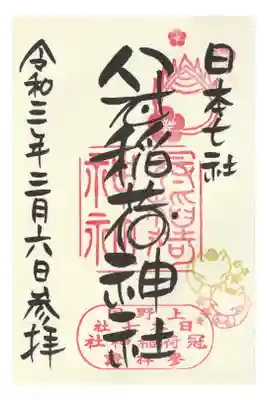 日本七社
冠稲荷神社
令和三年三月六日参拝
上野国
日本七社
冠稲荷神社